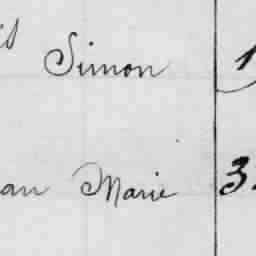 Simon 1
an Marie 3